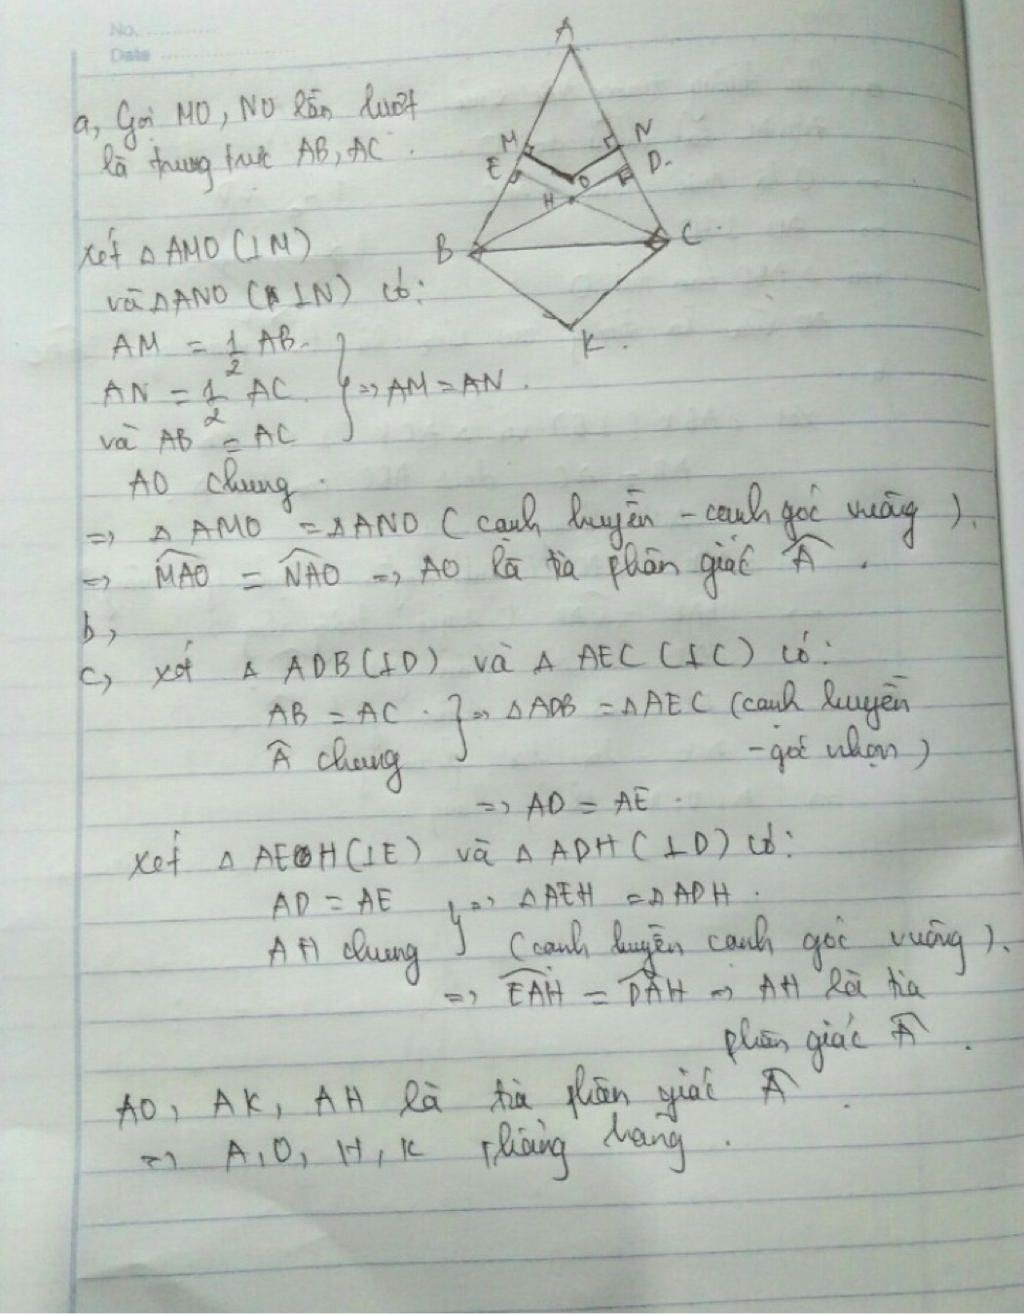 No. ..............
Date ..............
A
a, Gọi MO, NO lần lượt
là trung trực AB, AC.
M
N
E
D.
O
H
B
C
K.
xét △ AMO (⊥M)
và △ANO (⊥N) có:
AM = 1/2 AB.
AN = 1/2 AC. } => AM = AN.
và AB = AC
AO chung.
=> △ AMO = △ANO (cạnh huyền - cạnh góc vuông).
=> MAO = NAO => AO là tia phân giác Â.
b,
c, xét △ ADB(⊥D) và △ AEC (⊥C) có:
AB = AC. } => △ADB = △AEC (cạnh huyền
Â chung - góc nhọn)
=> AD = AE.
xét △ AEH(⊥E) và △ ADH (⊥D) có:
AD = AE } => △AEH = △ADH.
AH chung (cạnh huyền cạnh góc vuông).
=> EAH = DAH => AH là tia
phân giác Â.
AO, AK, AH là tia phân giác Â.
=> A, O, H, K thẳng hàng.